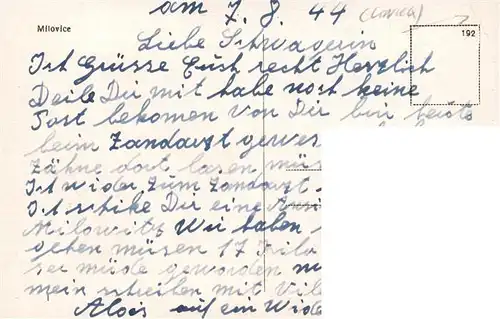 am 7.8.44 (Lovica)
Milovice
192
Liebe Schwagerin
Ich Grüsse Euch recht Herzlich
Deile Dir mit habe noch keine
Post bekomen von Dir bin heute
beim Zandarzt gewes
Zähne dort lasen müs
Ich wider Zum Zandarzt
Ich schike Dir eine Ansi
Milowitz Wir haben
gehen müsen 17 Kilo
ser müde geworden
mein schreiben mit Vil
Alois auf ein Wide